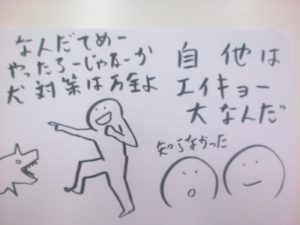 なんだてめー
やったろーじゃねーか
犬対策は万全よ
自他は
エイキョー
大なんだ
知らなかった